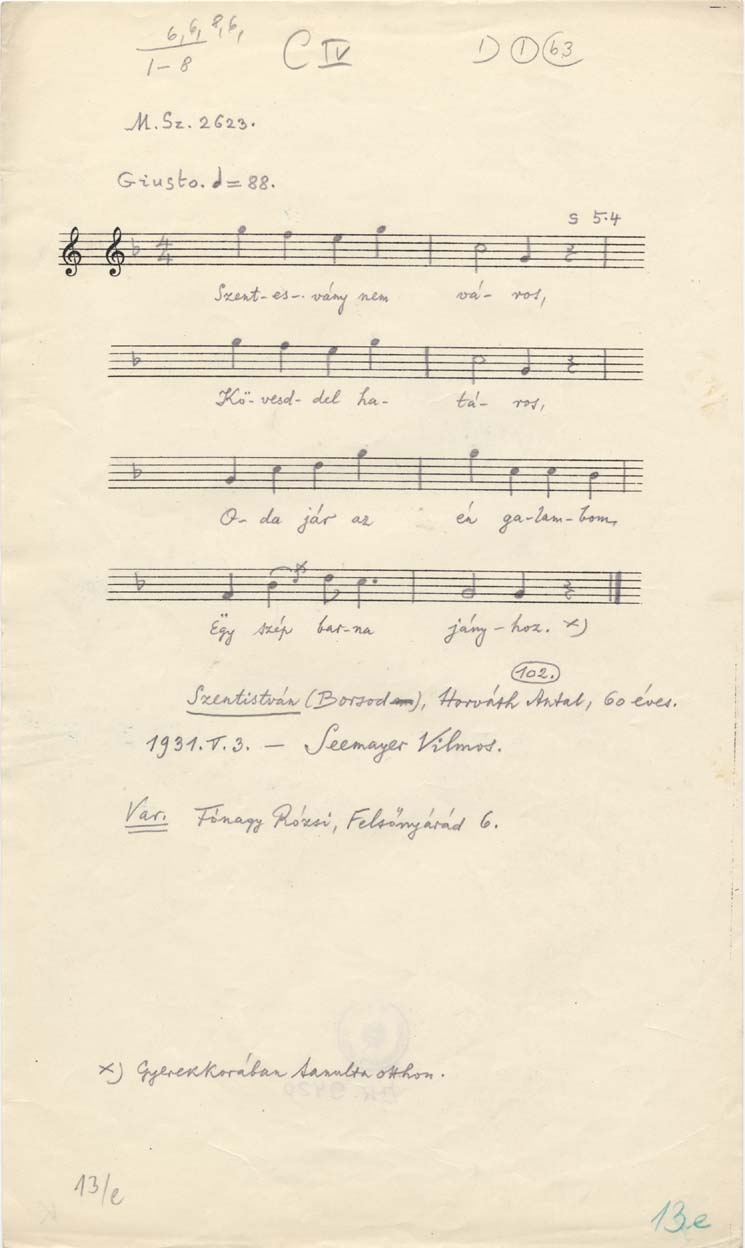 6, 6, 8, 6,
1-8
C IV
D 1 b3
M. Sz. 2623.
Giusto. = 88.
s 5.4
4
4
Szent-es-. vány nem vá- ros,
Kö-vesd-del ha- tá- ros,
O- da jár az én ga-lam-bom,
x
Ëgy szép bar-na jány-hoz. x)
102.
Szentistván (Borsod), Horváth Antal, 60 éves.
1931. V. 3. — Seemayer Vilmos.
Var. Fónagy Rózsi, Felsőnyárád 6.
x) Gyerekkorában tanulta otthon.
13/e
13e